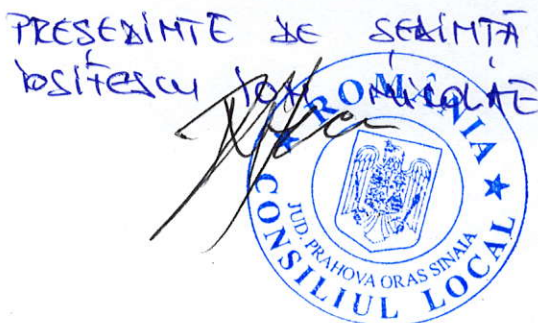 PREȘEDINTE DE ȘEDINȚĂ
IOSIFESCU ION NICOLAE
ROMÂNIA
CONSILIUL LOCAL
JUD. PRAHOVA ORAS SINAIA